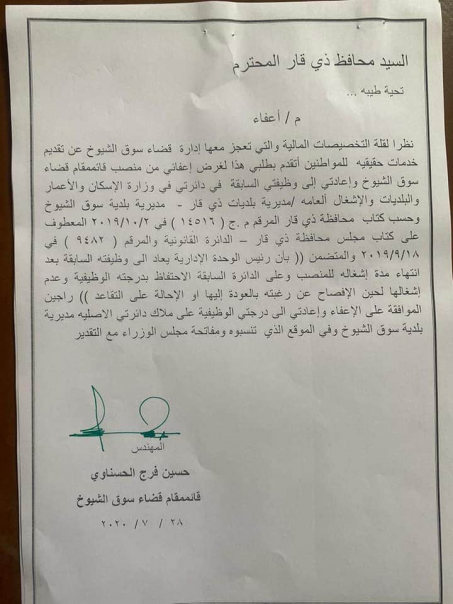 السيد محافظ ذي قار المحترم
تحية طيبه ...
م / أعفاء
نظرا لقلة التخصيصات المالية والتي تعجز معها إدارة قضاء سوق الشيوخ عن تقديم
خدمات حقيقيه للمواطنين أتقدم بطلبي هذا لغرض إعفائي من منصب قائممقام قضاء
سوق الشيوخ وإعادتي إلى وظيفتي السابقة في دائرتي في وزارة الإسكان والأعمار
والبلديات والإشغال العامه /مديرية بلديات ذي قار - مديرية بلدية سوق الشيوخ
وحسب كتاب محافظة ذي قار المرقم م.ج ( ١٤٥١٦ ) في ٢٠١٩/١٠/٢ المعطوف
على كتاب مجلس محافظة ذي قار – الدائرة القانونية والمرقم ( ٩٤٨٢ ) في
٢٠١٩/٩/١٨ والمتضمن (( بأن رئيس الوحدة الإدارية يعاد الى وظيفته السابقة بعد
انتهاء مدة إشغاله للمنصب وعلى الدائرة السابقة الاحتفاظ بدرجته الوظيفية وعدم
إشغالها لحين الإفصاح عن رغبته بالعودة إليها او الإحالة على التقاعد )) راجين
الموافقة على الإعفاء وإعادتي الى درجتي الوظيفية على ملاك دائرتي الاصليه مديرية
بلدية سوق الشيوخ وفي الموقع الذي تنسبوه ومفاتحة مجلس الوزراء مع التقدير
المهندس
حسين فرج الحسناوي
قائممقام قضاء سوق الشيوخ
٢٨ / ٧ / ٢٠٢٠